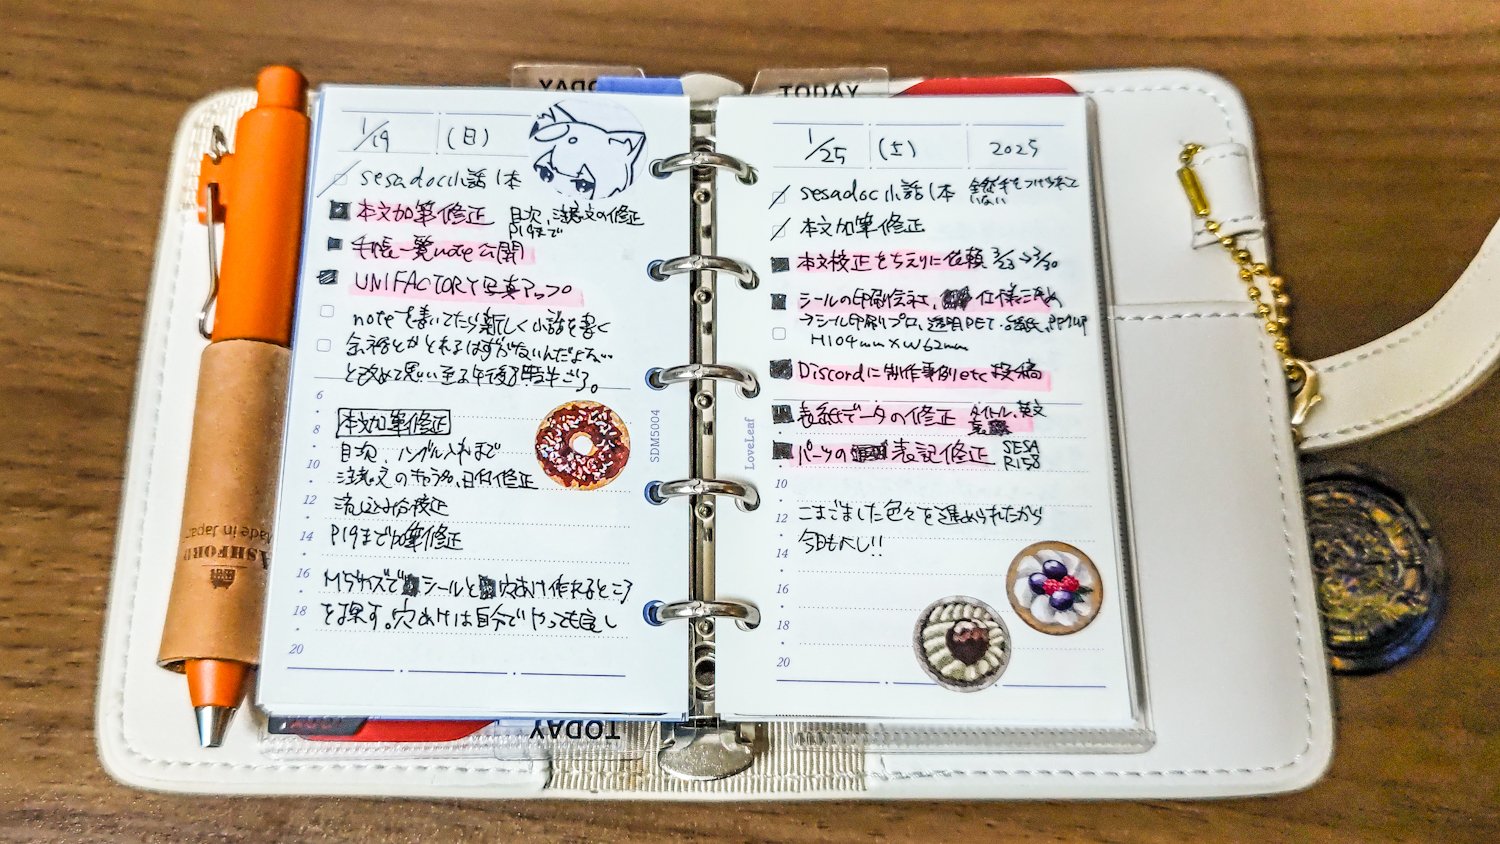 TODAY
1/19 (日)
sesadoc小話1本
本文加筆修正 目次、注意文の修正
P19まで
手帳一覧note公開
UNIFACTORY写真アップ
noteを書いてたら新しく小話を書く
余裕とかとれるはずがないんだよない…
と改めて思い至る午後8時半ごろ。
6
8
10
12
14
16
18
20
本文加筆修正
目次、ハングル入れまで
注意文の 日付修正
流し込み分校正
P19まで加筆修正
M5サイズで シールと 穴あけ作れるところ
を探す。穴あけは自分でやっても良し
SDM5004
TODAY
1/25 (土) 2025
sesadoc小話1本 全然手をつけられて
いない
本文加筆修正
本文校正をちえりに依頼 3/23→3/30
シールの印刷会社、 仕様決め
→シール印刷プロ、透明PET
H104mm×W62mm
Discordに制作事例etc投稿
表紙データの修正 タイトル、英文
パーツの 表記修正 SESA
R158
10
12
14
16
18
20
こまごました色々を進められたから
今日もよし!!
LoveLeaf
TODAY
ASHFORD
Made in Japan